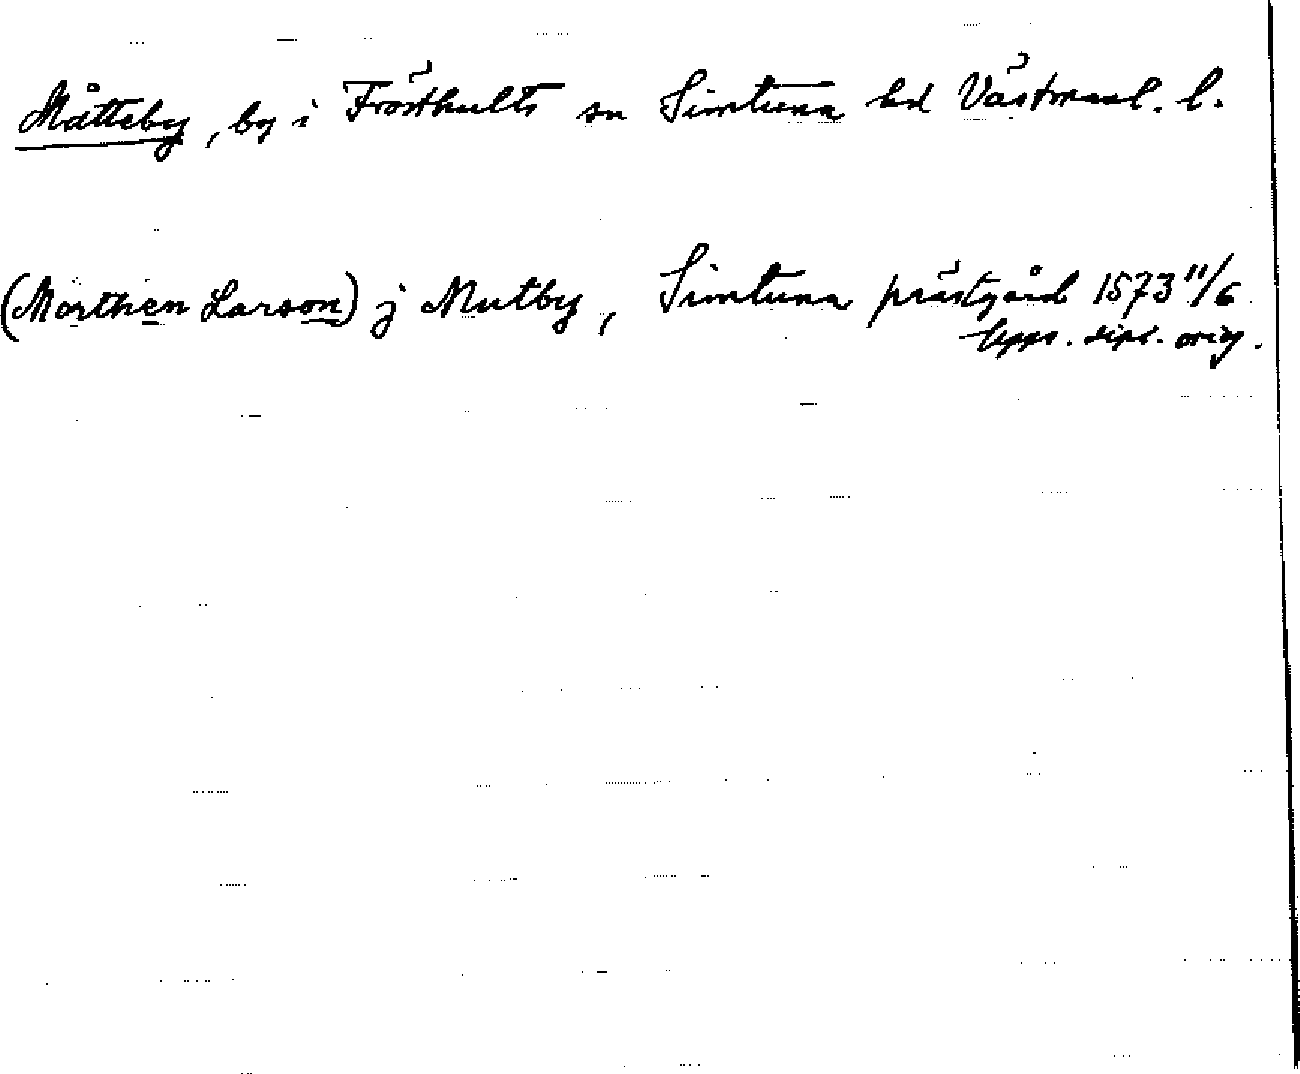 Måtteby, by i Frösthults sn Simtuna hd Västmanl. l.
(Morthen Larson) j Mutby, Simtuna prästgård 1573 11/6
Upps. dipl. orig.